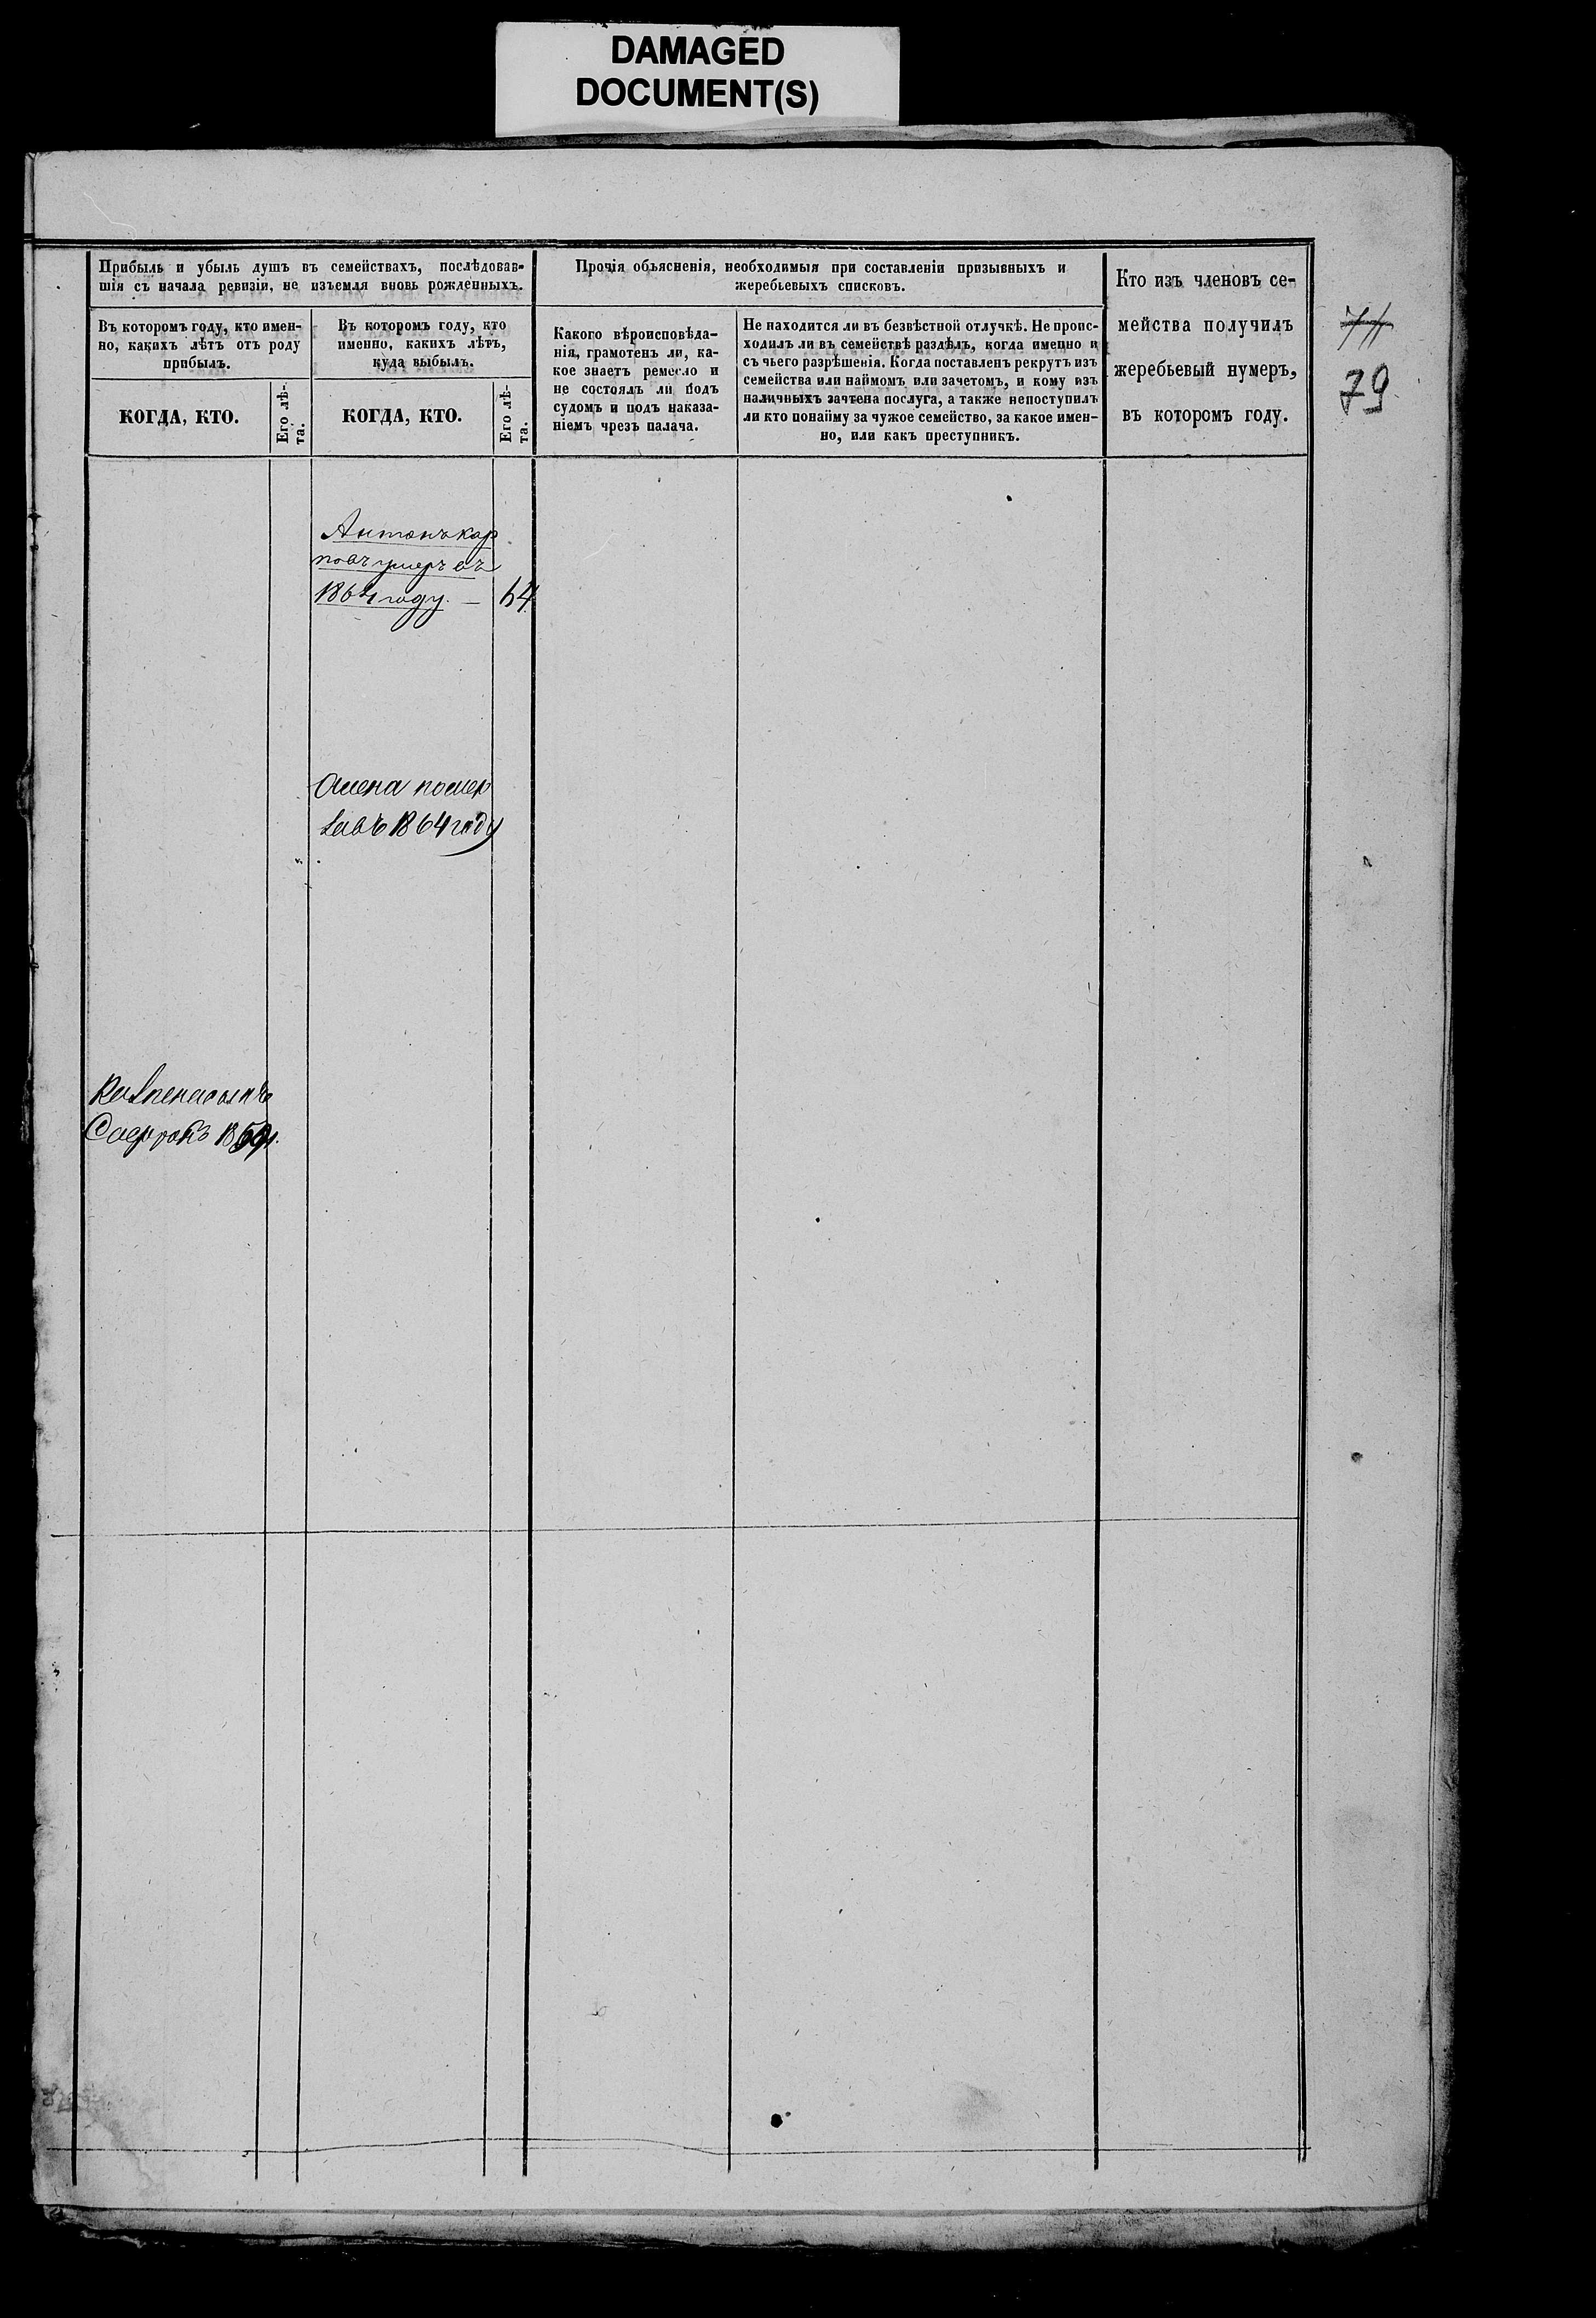 DAMAGED
DOCUMENT(S)
Прибыль и убыль душъ въ семействахъ, послѣдовав-
шія съ начала ревизіи, не изъемля вновь рожденныхъ.
Прочія объясненія, необходимыя при составленіи призывныхъ и
жеребьевыхъ списковъ.
Кто изъ членовъ се-
мейства получилъ
жеребьевый нумеръ,
въ которомъ году.
Въ которомъ году, кто имен-
но, какихъ лѣтъ отъ роду
прибылъ.
Въ которомъ году, кто
именно, какихъ лѣтъ,
куда выбылъ.
Какого вѣроисповѣда-
нія, грамотенъ ли, ка-
кое знаетъ ремесло и
не состоялъ ли подъ
судомъ и подъ наказа-
ніемъ чрезъ палача.
Не находится ли въ безвѣстной отлучкѣ. Не проис-
ходилъ ли въ семействѣ раздѣлъ, когда именно и
съ чьего разрѣшенія. Когда поставленъ рекрутъ изъ
семейства или наймомъ или зачетомъ, и кому изъ
наличныхъ зачтена послуга, а также непоступилъ
ли кто понайму за чужое семейство, за какое имен-
но, или какъ преступникъ.
КОГДА, КТО.
Его лѣ-
та.
КОГДА, КТО.
Его лѣ-
та.
79
Антонъ Кар
повъ умеръ въ
1864 году. — 64
помер
въ 1864 году